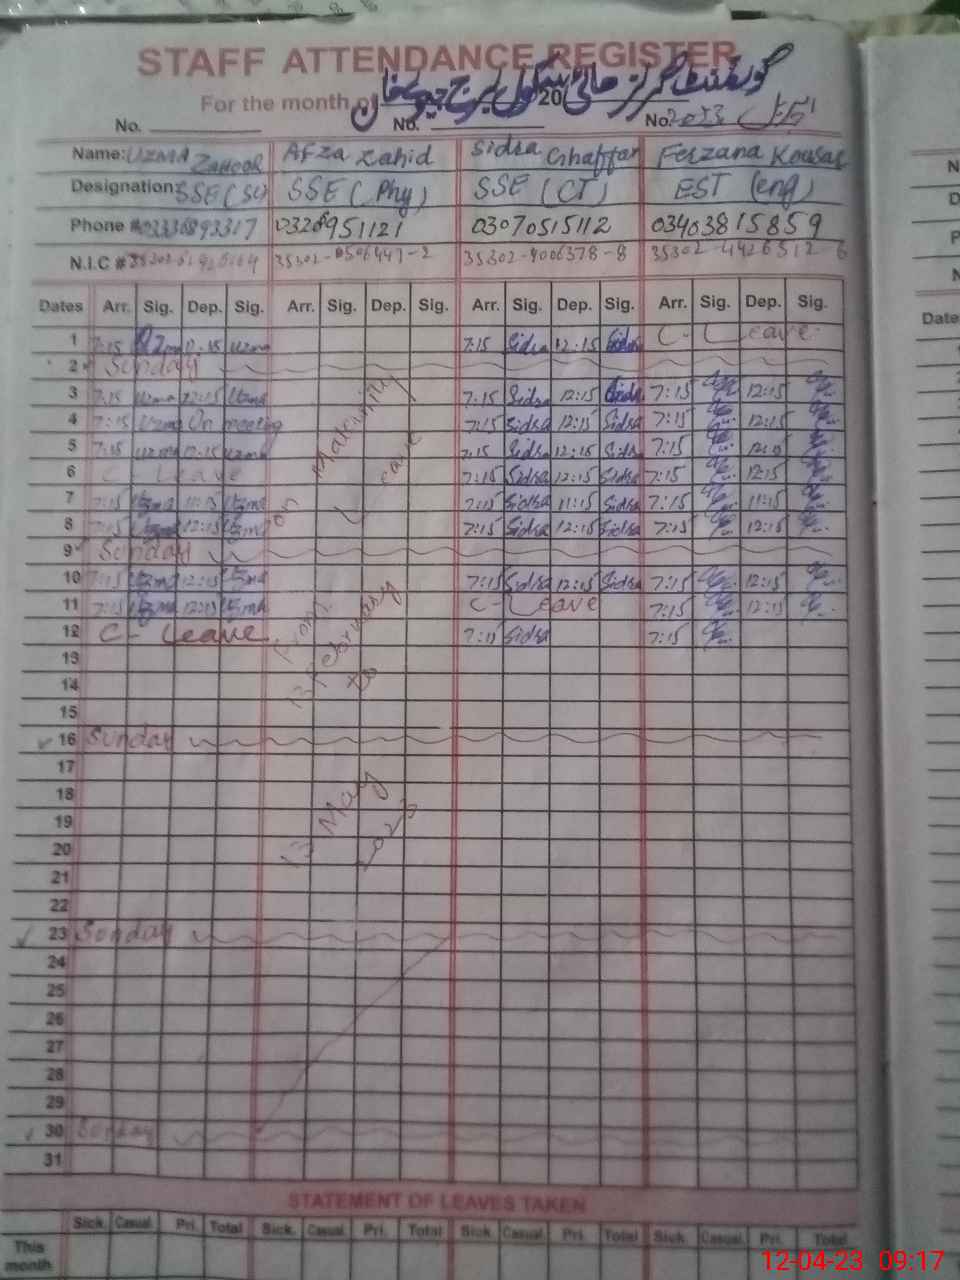 STAFF ATTENDANCE REGISTER
For the month of گورنمنٹ گرلز ہائی سکول 20
No. No. No 2023 اپریل
Name: UZMA ZAHOOR Afza Zahid Sidra Ghaffar Ferzana Kousar
Designation: SSE (Sc) SSE (Phy) SSE (CT) EST (eng)
Phone # 03070515112 03403815859
N.I.C # 35302-0506447-2 35302-9006378-8 35302-4426512-6
Dates Arr. Sig. Dep. Sig. Arr. Sig. Dep. Sig. Arr. Sig. Dep. Sig. Arr. Sig. Dep. Sig.
1 7:15 Uzma 12:15 Uzma 7:15 Sidra 12:15 Sidra C-Leave
2 Sunday
3 7:15 Uzma 12:15 Uzma 7:15 Sidra 12:15 Sidra 7:15 12:15
4 7:15 Uzma On meeting 7:15 Sidra 12:15 Sidra 7:15 12:15
5 7:15 Uzma 12:15 Uzma 7:15 Sidra 12:15 Sidra 7:15 12:15
6 C-Leave 7:15 Sidra 12:15 Sidra 7:15 12:15
7 7:15 Uzma 11:15 Uzma 7:15 Sidra 11:15 Sidra 7:15 11:15
8 7:15 Uzma 12:15 Uzma 7:15 Sidra 12:15 Sidra 7:15 12:15
9 Sunday
10 7:15 Uzma 12:15 Uzma 7:15 Sidra 12:15 Sidra 7:15 12:15
11 7:15 Uzma 12:15 Uzma C-Leave 7:15 12:15
12 C-Leave 7:15 Sidra 7:15
on Maternity
Leave
From
13 February
to
13 May
2023
13
14
15
16 Sunday
17
18
19
20
21
22
23 Sunday
24
25
26
27
28
29
30 Sunday
31
STATEMENT OF LEAVES TAKEN
Sick. Casual. Pri. Total Sick. Casual. Pri. Total Sick. Casual. Pri. Total Sick. Casual. Pri. Total
This month
12-04-23 09:17